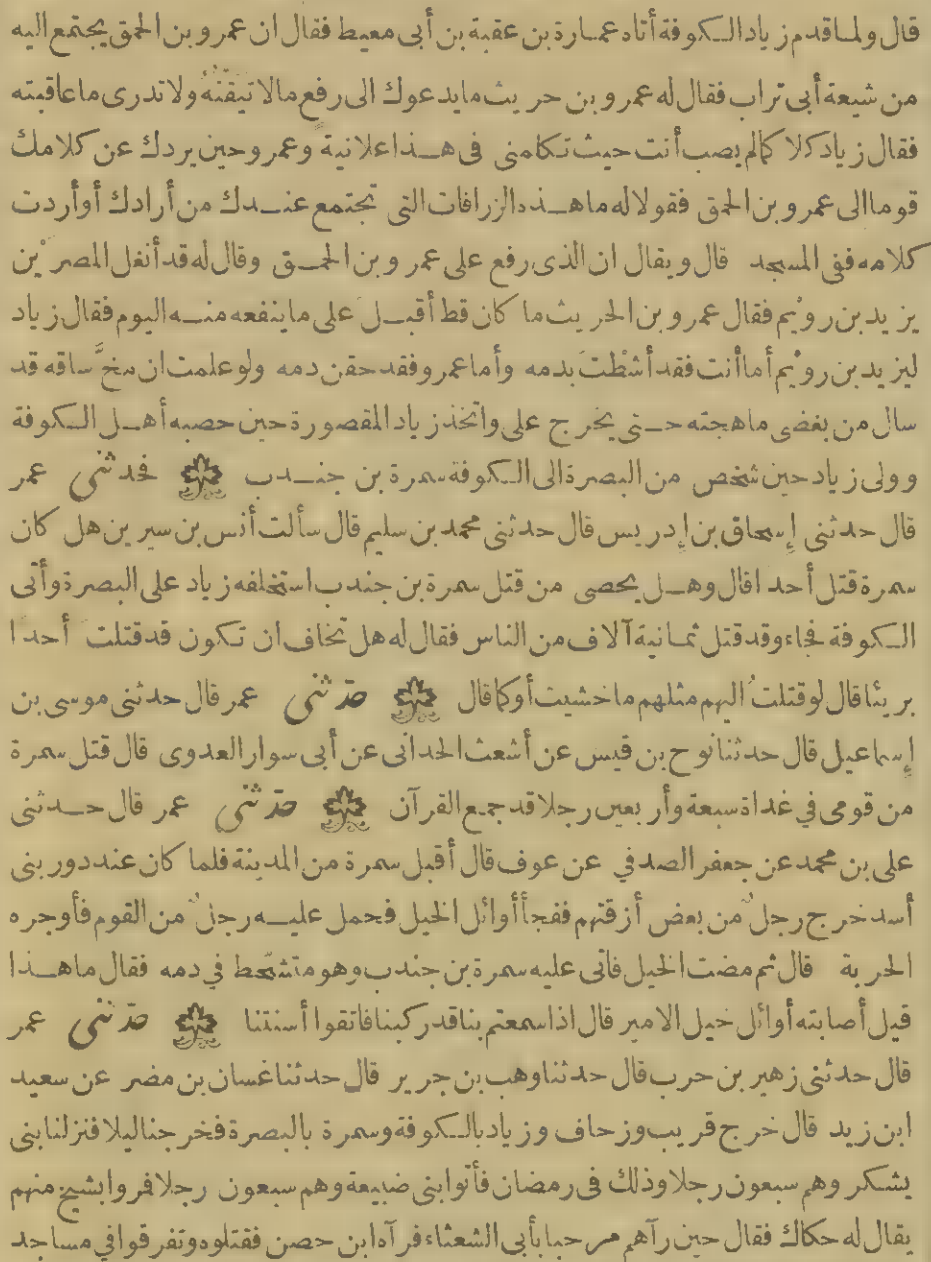 قال ولما قدم زياد الكوفة أتاه عمارة بن عقبة بن أبى معيط فقال ان عمرو بن الحمق يجتمع اليه
من شيعة أبى تراب فقال له عمرو بن حريث ما يدعوك الى رفع ما لا تيقنه ولا تدرى ما عاقبته
فقال زياد كلا كما لم يصب أنت حيث تكلمنى فى هذا علانية وعمرو حين يردك عن كلامك
قوما الى عمرو بن الحمق فقولا له ما هذه الزرافات التى تجتمع عندك من أرادك أو أردت
كلامه ففى المسجد قال ويقال ان الذى رفع على عمرو بن الحمق وقال له قد أنغل المصرْين
يزيد بن رويْم فقال عمرو بن الحريث ما كان قط أقبلَ على ما ينفعه منه اليوم فقال زياد
ليزيد بن رويْم أما أنت فقد أشطْتَ بدمه وأما عمرو فقد حقن دمه ولو علمت ان مخَّ ساقه قد
سال من بغضى ما هجته حتى يخرج على واتخذ زياد المقصورة حين حصبه أهل الكوفة
وولى زياد حين شخص من البصرة الى الكوفة سمرة بن جندب فحدثنى عمر
قال حدثنى إسحاق بن إدريس قال حدثنى محمد بن سليم قال سألت أنس بن سيرين هل كان
سمرة قتل أحدا قال وهل يحصى من قتل سمرة بن جندب استخلفه زياد على البصرة وأتى
الكوفة فجاء وقد قتل ثمانية آلاف من الناس فقال له هل تخاف ان تكون قد قتلت أحدا
بريئا قال لو قتلتُ اليهم مثلهم ما خشيت أو كما قال حدّثنى عمر قال حدثنى موسى بن
إسماعيل قال حدثنا نوح بن قيس عن أشعث الحدانى عن أبى سوار العدوى قال قتل سمرة
من قومى في غداة سبعة وأربعين رجلا قد جمع القرآن حدّثنى عمر قال حدثنى
على بن محمد عن جعفر الصدفي عن عوف قال أقبل سمرة من المدينة فلما كان عند دور بنى
أسد خرج رجلٌ من بعض أزقتهم ففجأ أوائل الخيل فحمل عليه رجلٌ من القوم فأوجره
الحربة قال ثم مضت الخيل فاتى عليه سمرة بن جندب وهو متشحّط في دمه فقال ما هذا
قيل أصابته أوائل خيل الامير قال اذا سمعتم بنا قد ركبنا فاتقوا أسنتنا حدّثنى عمر
قال حدثنى زهير بن حرب قال حدثنا وهب بن جرير قال حدثنا غسان بن مضر عن سعيد
ابن زيد قال خرج قريب وزحاف وزياد بالكوفة وسمرة بالبصرة فخرجنا ليلا فنزلنا بنى
يشكر وهم سبعون رجلا وذلك فى رمضان فأتوا بنى ضبيعة وهم سبعون رجلا فمروا بشيخ منهم
يقال له حكاك فقال حين رآهم مرحبا بأبى الشعثاء فرآه ابن حصن فقتلوه وتفرقوا في مساجد